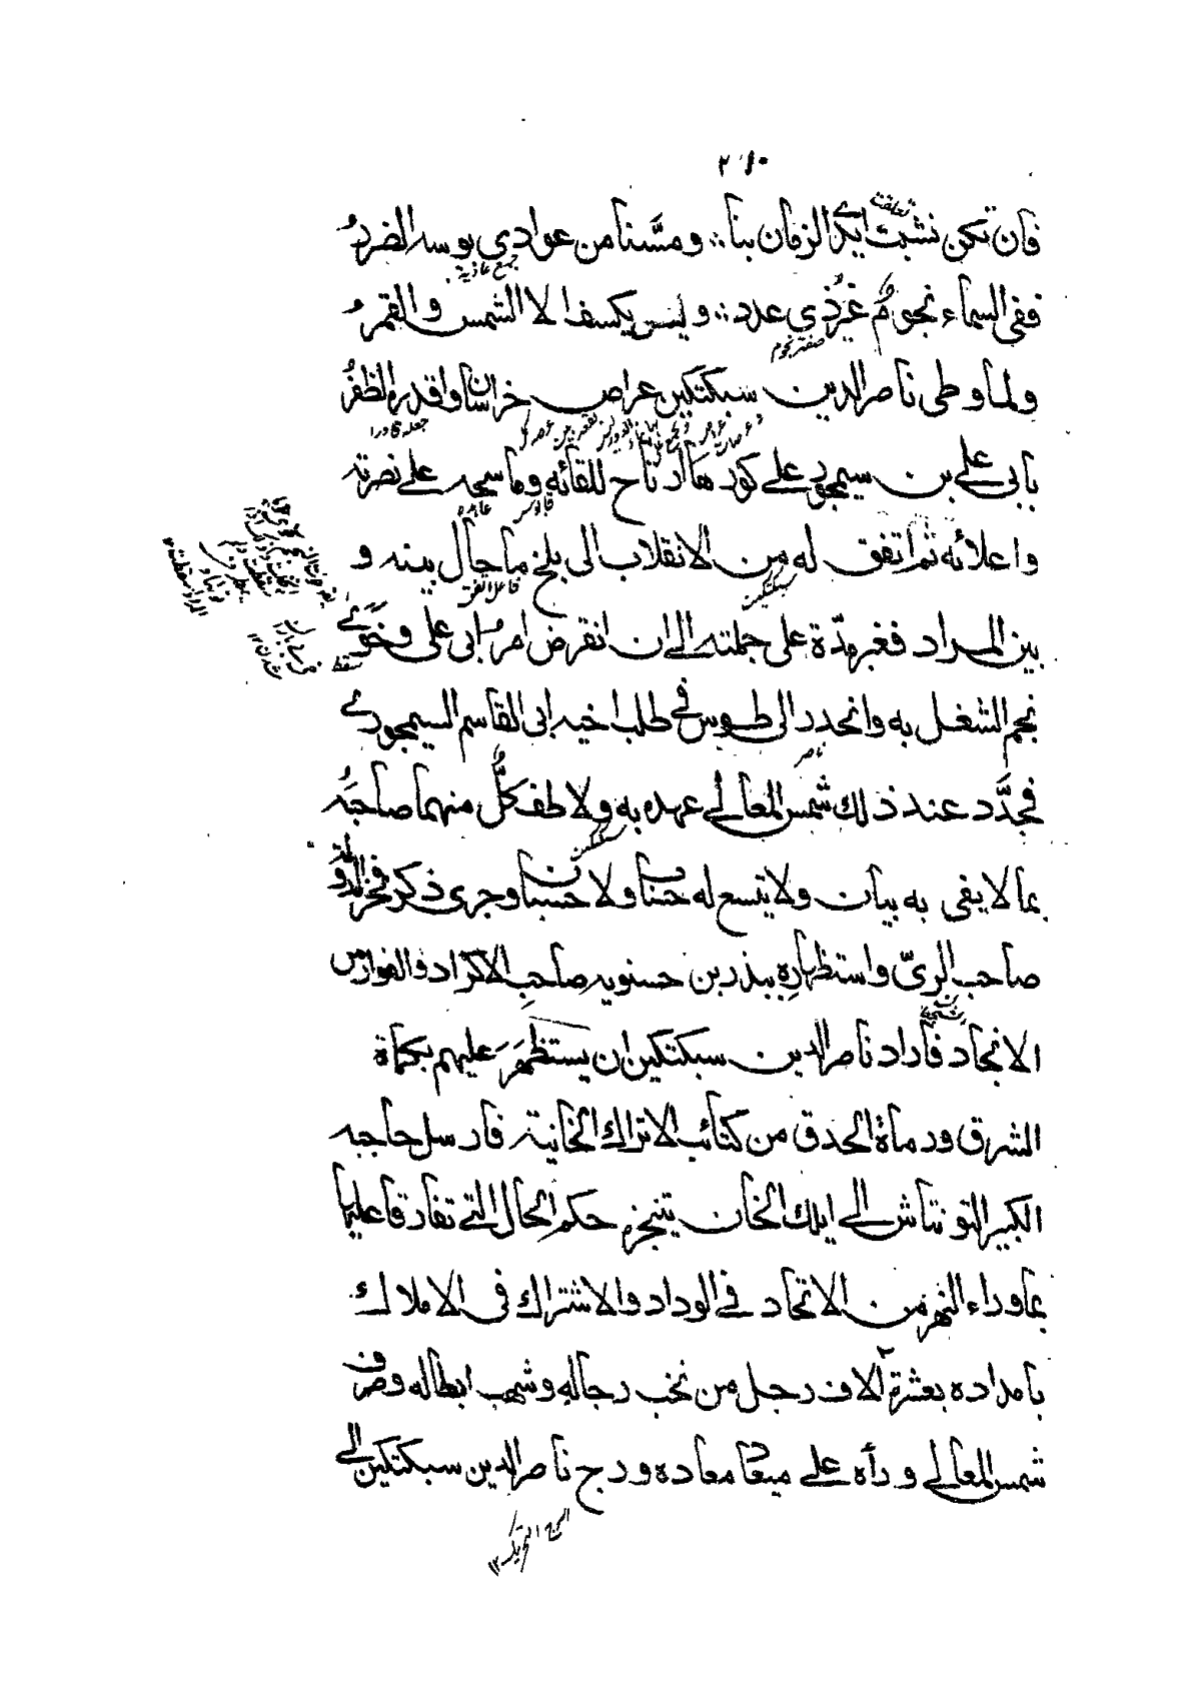 ٢١٠
تعلقت
فان تكن نشبت ايدي الزمان بنا ∴ ومسّنا من عوادي بوسه الضررُ
جمع عادية
ففي السماء نجومٌ غيرُ ذي عدد ∴ وليس يكسف الا الشمس والقمرُ
صفة نجوم
ولما وطى ناصر الدين سبكتكين عراص خراسان واقدره الظفرُ
بابي علي بن سيمجور على كورها ارتاح للقائه وما سحه على نصرته
واعلائه ثم اتفق له من الانقلاب الى بلخ ما حال بينه و
سبكتكين
فاعل اتفق
بين المراد فغبر مدّة على جملته الى ان انقرض امر ابي على وخوى
نجم الشغل به وانحدر الى طوس في طلب اخيه ابي القاسم السيمجوري
ناصر
فجدَّد عند ذلك شمس المعالي عهده به ولاطف كلٌّ منهما صاحبَه
سبكتكين
بما لا يفى به بيان ولا يتسع له حساب ولا حسبان وجرى ذكر فخر الدولة
صاحب الريّ واستظهارِه ببدر بن حسنويه صاحبِ الاكراد والفوارس
الانجاد فاراد ناصر الدين سبكتكين ان يستظهَرَ عليهم بكماة
المشرق ورماة الحدق من كتائب الاتراك الخانية فارسل حاجبه
الكبير التونتاش الى ايلك الخان يتنجزه حكم الحال التي تفارقا عليها
بما وراء النهر من الاتحاد في الوداد والاشتراك في الاملاك
بامداده بعشرة آلاف رجل من نخب رجاله وشهب ابطاله وصرف
شمس المعالي وراءه على ميعاد معاده ودج ناصر الدين سبكتكين الى